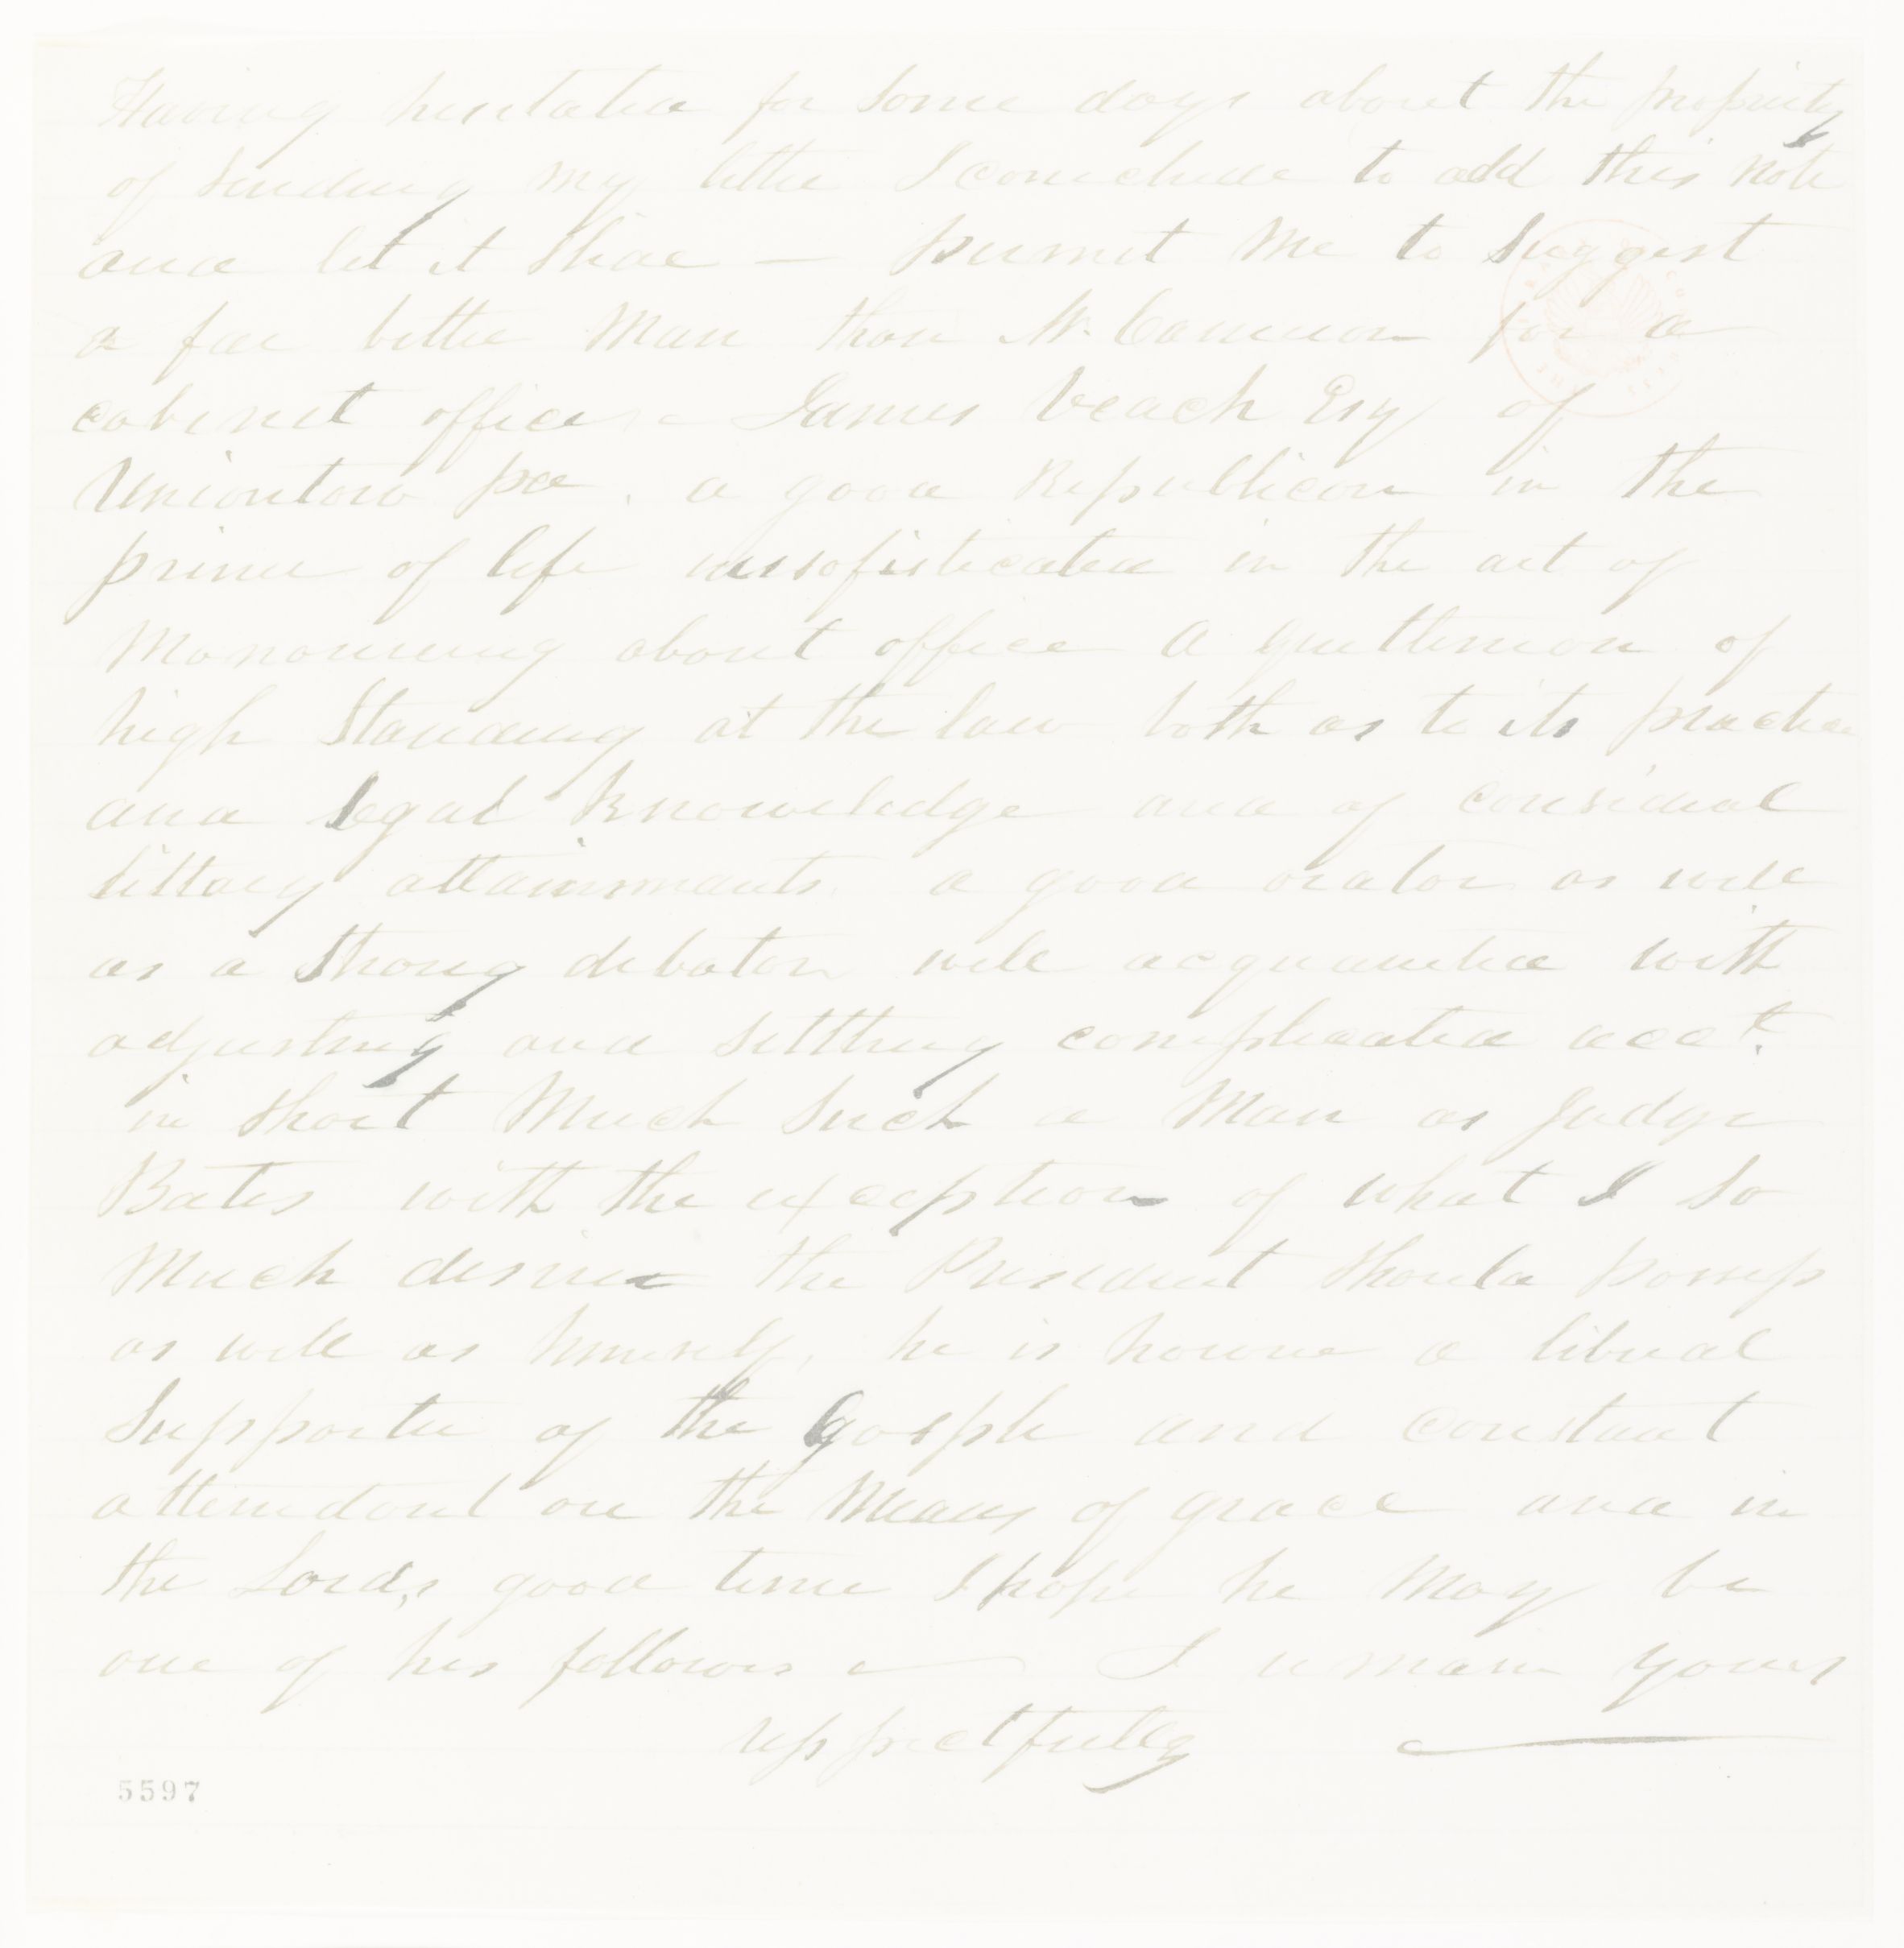 Having hesitated for some days about the propriety
of sending my letter I conclude to add this note
and let it slide — permit me to suggest
a far better Man than Mr. Cameron for a
cabinet officer James Veach Esq of
Uniontow pa. a good Republican in the
prime of life unsofisticated in the art of
about office a gentleman of
high Standing at the law both as to its practice
and legal knowledge and of consideral
littary attainments a good orator as well
as a strong debator well acquainted with
adjusting and settling complicated acct.
in short Much such a Man as Judge
Bates with the exception of what I so
Much desired the President should possess
as well as himself, he is however a liberal
Supporter of the Gosple and constant
attendant on the Means of grace and in
the Lord,s good time I hope he May be
one of his followers — I remain yours
respectfully
5597